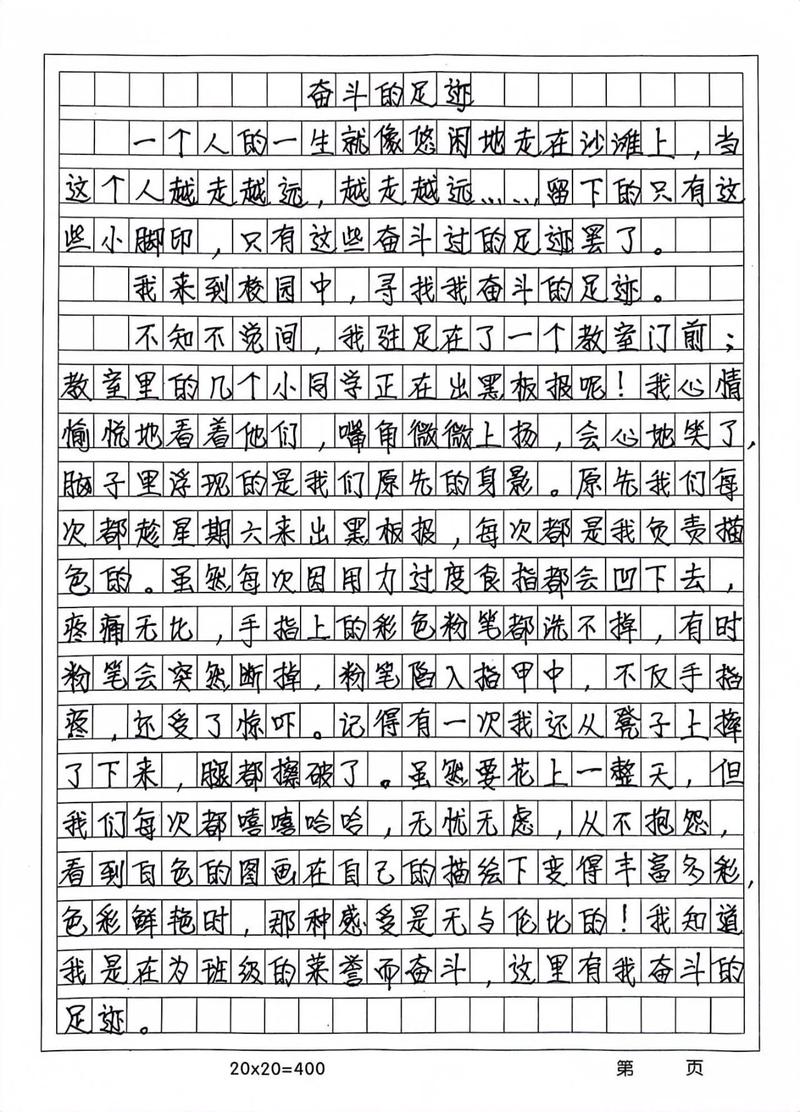 奋斗的足迹
一个人的一生就像悠闲地走在沙滩上，当
这个人越走越远，越走越远……留下的只有这
些小脚印，只有这些奋斗过的足迹罢了。
我来到校园中，寻找我奋斗的足迹。
不知不觉间，我驻足在了一个教室门前；
教室里的几个小同学正在出黑板报呢！我心情
愉悦地看着他们，嘴角微微上扬，会心地笑了，
脑子里浮现的是我们原先的身影。原先我们每
次都趁星期六来出黑板报，每次都是我负责描
色的。虽然每次因用力过度食指都会凹下去，
疼痛无比，手指上的彩色粉笔都洗不掉，有时
粉笔会突然断掉，粉笔陷入指甲中，不仅手指
疼，还受了惊吓。记得有一次我还从凳子上摔
了下来，腿都擦破了。虽然要花上一整天，但
我们每次都嘻嘻哈哈，无忧无虑，从不抱怨，
看到白色的图画在自己的描绘下变得丰富多彩，
色彩鲜艳时，那种感受是无与伦比的！我知道
我是在为班级的荣誉而奋斗，这里有我奋斗的
足迹。
20×20=400 第 页